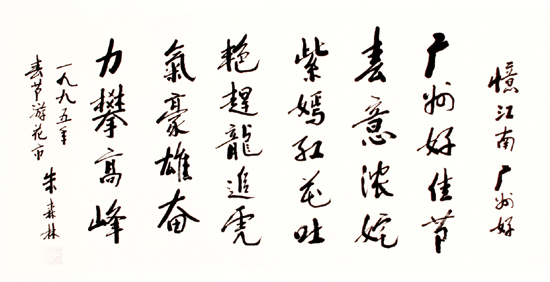 憶江南 广州好
广州好佳节
春意浓姹
紫嫣红花吐
艳趕龍追虎
氣豪雄奋
力攀高峰
一九九五年
春节游花市 朱森林